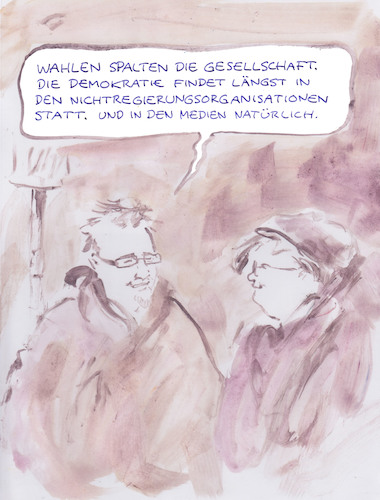 WAHLEN SPALTEN DIE GESELLSCHAFT.
DIE DEMOKRATIE FINDET LÄNGST IN
DEN NICHTREGIERUNGSORGANISATIONEN
STATT. UND IN DEN MEDIEN NATÜRLICH.